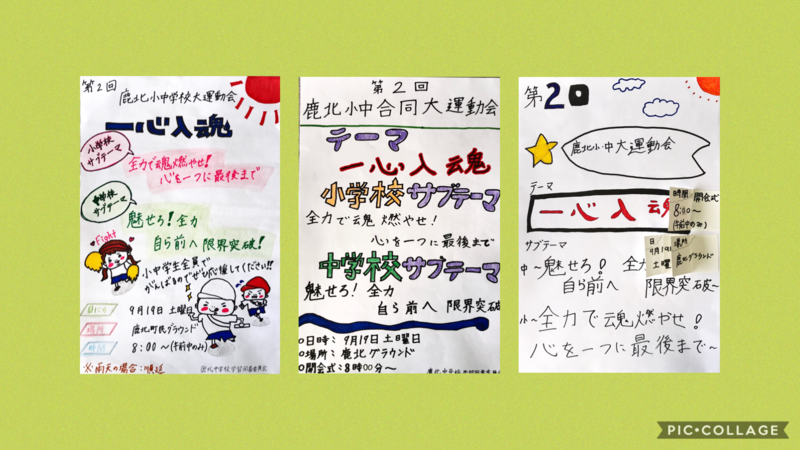 第2回
鹿北小中学校大運動会
一心入魂
小学校
サブテーマ
全力で魂燃やせ!
心を一つに最後まで
中学校
サブテーマ
魅せろ!全力
自ら前へ 限界突破!
Fight
小中学生全員で
がんばるのでぜひ応援してください!!
日にち
9月19日 土曜日
場所
鹿北町民グラウンド
時間
8:00〜(午前中のみ)
※雨天の場合:順延
第2回
鹿北小中合同大運動会
テーマ
一心入魂
小学校サブテーマ
全力で魂燃やせ!
心を一つに最後まで
中学校サブテーマ
魅せろ!全力
自ら前へ 限界突破
○日時:9月19日土曜日
○場所:鹿北グラウンド
○開会式:8時00分〜
第2回
鹿北小中大運動会
テーマ
一心入魂
時間 開会式
8:00〜
(午前中のみ)
日 場所
9月19日
土曜 鹿北グラウンド
サブテーマ
中〜魅せろ!全
自ら前へ 限界突破〜
小〜全力で魂燃やせ!
心を一つに最後まで〜
PIC•COLLAGE